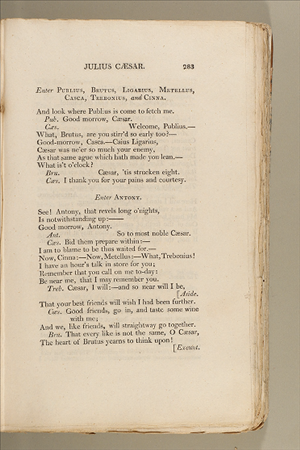 JULIUS CÆSAR. 263
Enter Publius, Brutus, Ligarius, Metellus,
Casca, Trebonius, and Cinna.
And look where Publius is come to fetch me.
Pub. Good morrow, Cæsar.
Cæs. Welcome, Publius.—
What, Brutus, are you stirr'd so early too?—
Good-morrow, Casca.—Caius Ligarius,
Cæsar was ne'er so much your enemy,
As that same ague which hath made you lean.—
What is't o'clock?
Bru. Cæsar, 'tis strucken eight.
Cæs. I thank you for your pains and courtesy.
Enter Antony.
See! Antony, that revels long o'nights,
Is notwithstanding up:——
Good morrow, Antony.
Ant. So to most noble Cæsar.
Cæs. Bid them prepare within:—
I am to blame to be thus waited for.—
Now, Cinna:—Now, Metellus:—What, Trebonius!
I have an hour's talk in store for you;
Remember that you call on me to-day:
Be near me, that I may remember you.
Treb. Cæsar, I will:—and so near will I be,
[Aside.
That your best friends will wish I had been further.
Cæs. Good friends, go in, and taste some wine
with me;
And we, like friends, will straightway go together.
Bru. That every like is not the same, O Cæsar,
The heart of Brutus yearns to think upon!
[Exeunt.